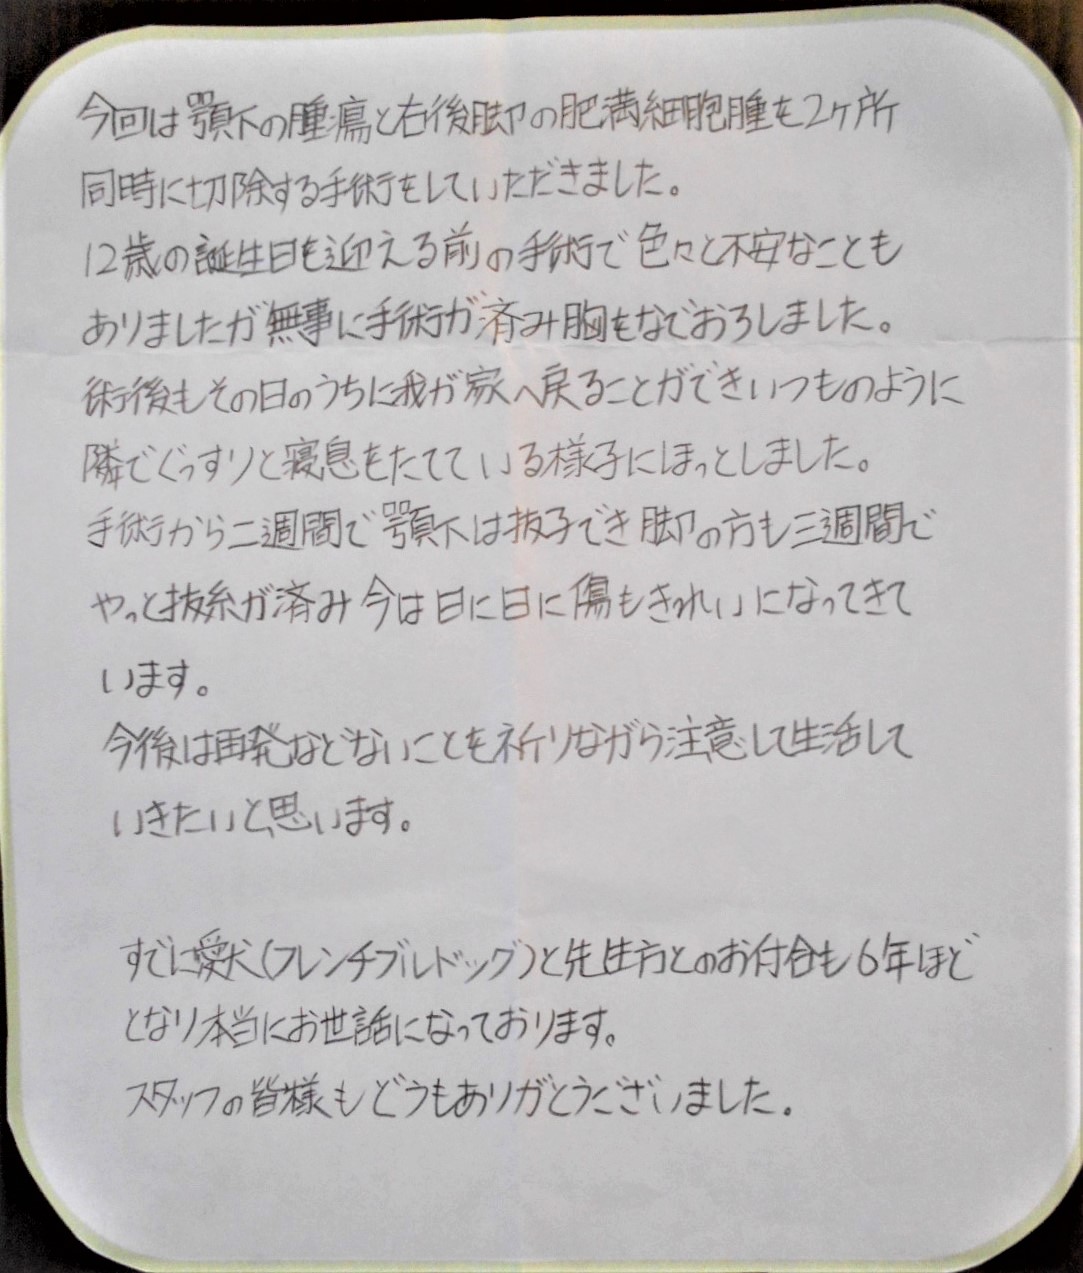 今回は顎下の腫瘍と右後脚の肥満細胞腫を2ヶ所
同時に切除する手術をしていただきました。
12歳の誕生日も迎える前の手術で色々と不安なことも
ありましたが無事に手術が済み胸をなでおろしました。
術後もその日のうちに我が家へ戻ることができいつものように
隣でぐっすりと寝息をたてている様子にほっとしました。
手術から二週間で顎下は抜子でき脚の方も三週間で
やっと抜糸が済み今は日に日に傷もきれいになってきて
います。
今後は再発などないことも祈りながら注意して生活して
いきたいと思います。
すでに愛犬(フレンチブルドッグ)と先生方とのお付合も6年ほど
となり本当にお世話になっております。
スタッフの皆様もどうもありがとうございました。